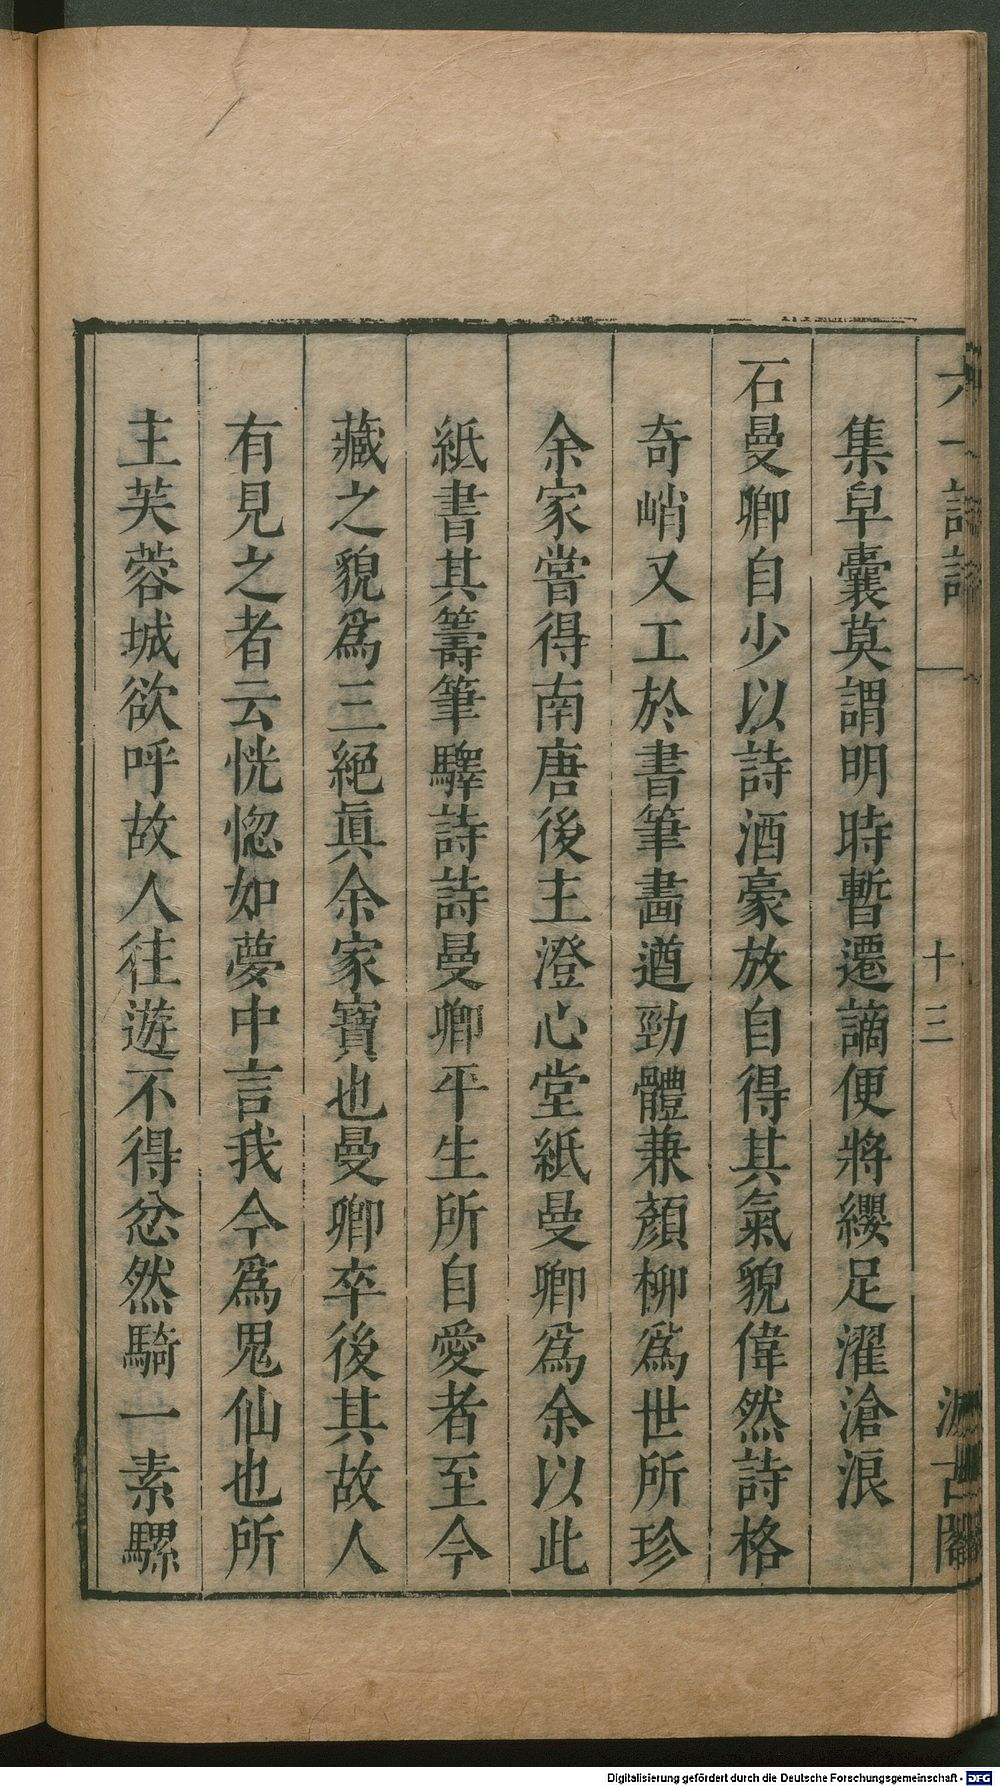 六一詩話
十三
汲古閣
集皁囊莫謂明時暫遷謫便將纓足濯滄浪
石曼卿自少以詩酒豪放自得其氣貌偉然詩格
奇峭又工於書筆畫遒勁體兼顏柳爲世所珍
余家嘗得南唐後主澄心堂紙曼卿爲余以此
紙書其籌筆驛詩詩曼卿平生所自愛者至今
藏之貌爲三絕眞余家寶也曼卿卒後其故人
有見之者云恍惚如夢中言我今爲鬼仙也所
主芙蓉城欲呼故人往遊不得忿然騎一素騾
Digitalisierung gefördert durch die Deutsche Forschungsgemeinschaft - DFG